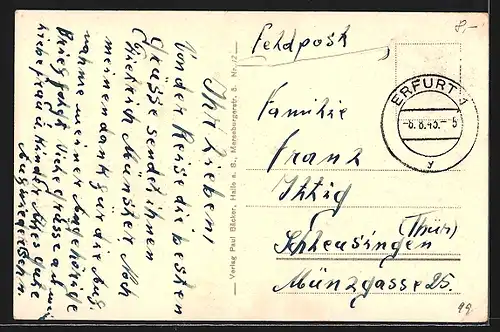 Feldpost
8,-
ERFURT 1
-8.8.43.- 5
y
Familie
Franz
Ittig
Schleusingen
(Thür)
Münzgasse 25.
99
Verlag Paul Bäcker, Halle a. S., Merseburgerstr. 3. Nr. 12
Ihr Lieben!
Von der Reise die besten
Grüsse sendet ihnen
Dietrich Münster. Noch
meinen dank für die Auf-
nahme meiner Angehörige
Brief folgt. Viele grüsse an
liebe frau u. Kinder. Alles gute
Auf wiedersehn.